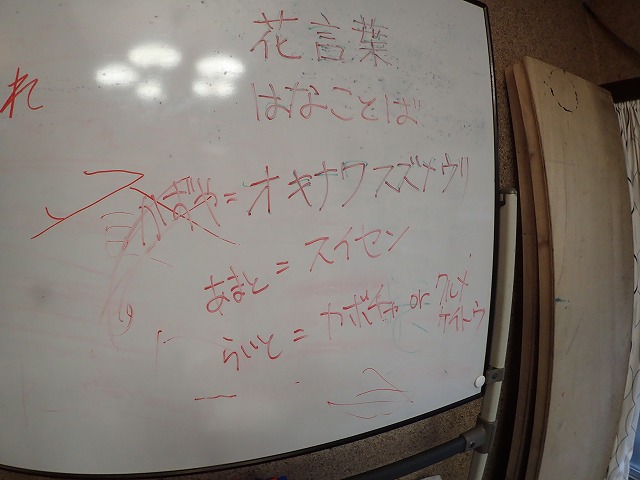 花言葉
はなことば
れ
かぐや=オキナワスズメウリ
あまと=スイセン
らいと=カボチャ or クルメ
ケイトウ